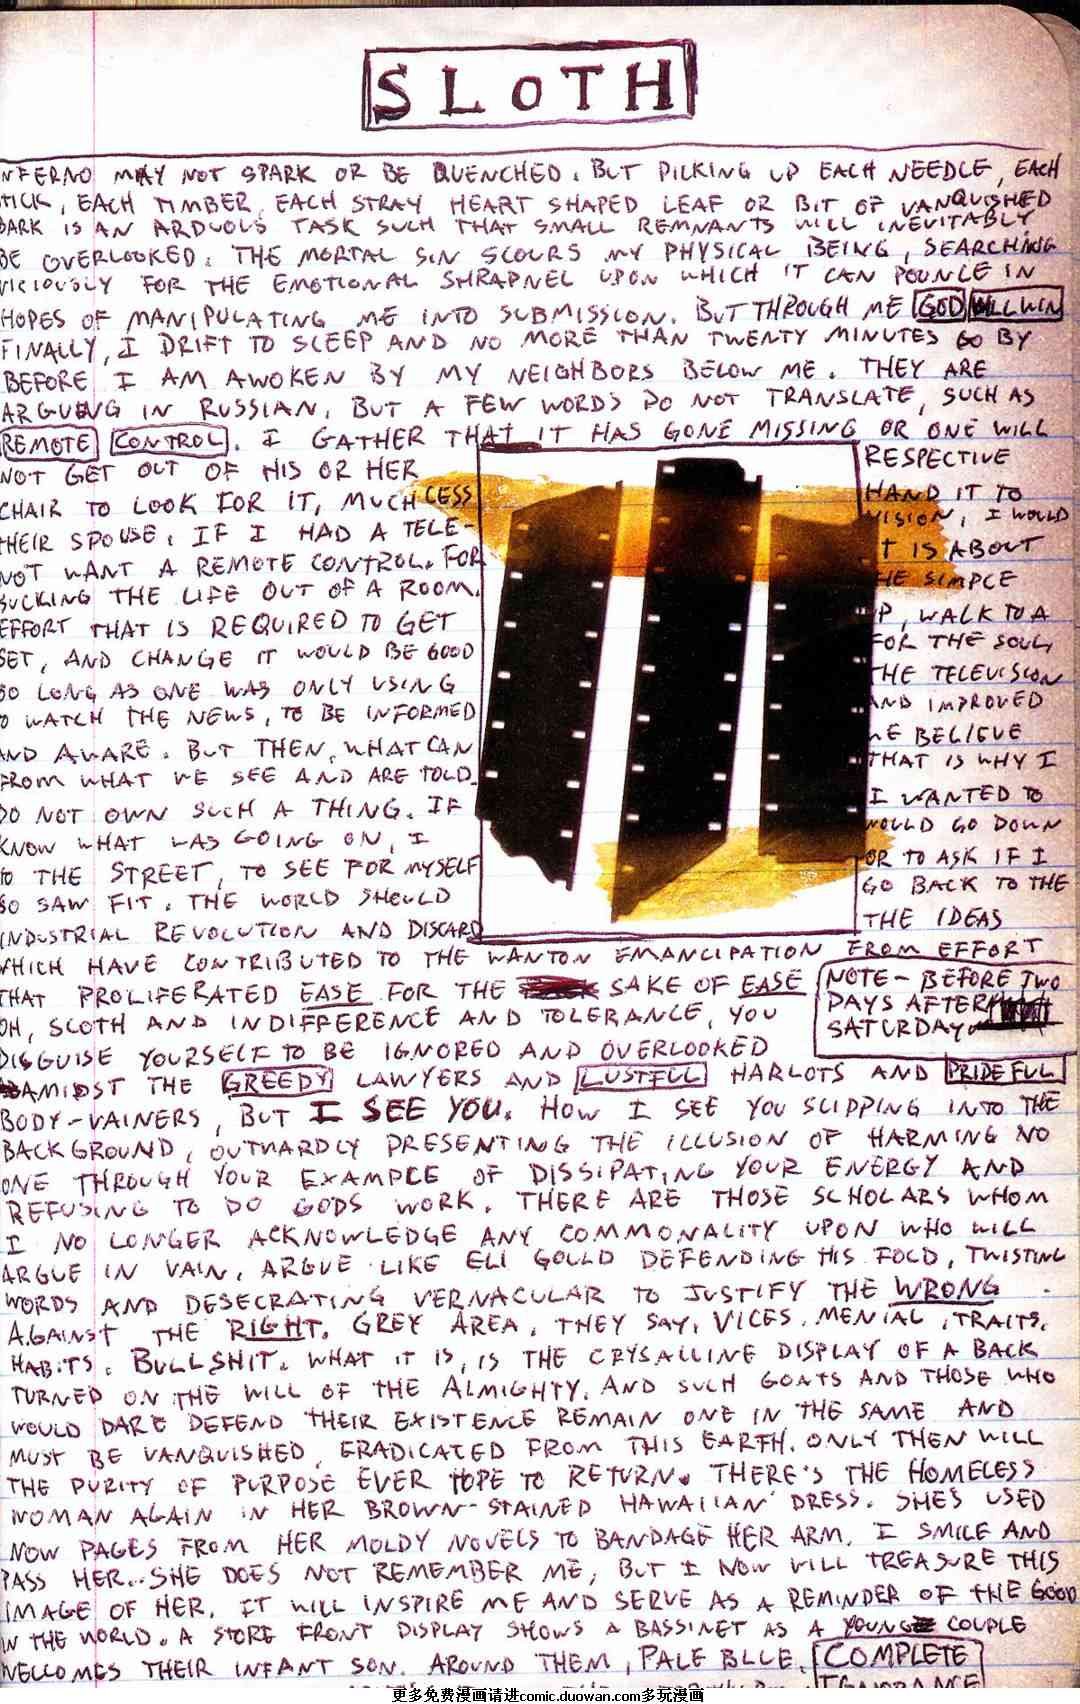 SLOTH
NFERNO MAY NOT SPARK OR BE QUENCHED. BUT PICKING UP EACH NEEDLE, EACH
TICK, EACH TIMBER, EACH STRAY HEART SHAPED LEAF OR BIT OF VANQUISHED
BARK IS AN ARDUOUS TASK SUCH THAT SMALL REMNANTS WILL INEVITABLY
BE OVERLOOKED. THE MORTAL SIN SCOURS MY PHYSICAL BEING, SEARCHING
VICIOUSLY FOR THE EMOTIONAL SHRAPNEL UPON WHICH IT CAN POUNCE IN
HOPES OF MANIPULATING ME INTO SUBMISSION. BUT THROUGH ME GOD WILL WIN
FINALLY, I DRIFT TO SLEEP AND NO MORE THAN TWENTY MINUTES GO BY
BEFORE I AM AWOKEN BY MY NEIGHBORS BELOW ME. THEY ARE
ARGUING IN RUSSIAN, BUT A FEW WORDS DO NOT TRANSLATE, SUCH AS
REMOTE CONTROL. I GATHER THAT IT HAS GONE MISSING OR ONE WILL
NOT GET OUT OF HIS OR HER RESPECTIVE
CHAIR TO LOOK FOR IT, MUCH LESS HAND IT TO
THEIR SPOUSE. IF I HAD A TELE- VISION, I WOULD
NOT WANT A REMOTE CONTROL. FOR IT IS ABOUT
SUCKING THE LIFE OUT OF A ROOM. THE SIMPLE
EFFORT THAT IS REQUIRED TO GET UP, WALK TO A
SET, AND CHANGE IT WOULD BE GOOD FOR THE SOUL,
SO LONG AS ONE WAS ONLY USING THE TELEVISION
TO WATCH THE NEWS, TO BE INFORMED AND IMPROVED
AND AWARE. BUT THEN, WHAT CAN WE BELIEVE
FROM WHAT WE SEE AND ARE TOLD. THAT IS WHY I
DO NOT OWN SUCH A THING. IF I WANTED TO
KNOW WHAT WAS GOING ON, I WOULD GO DOWN
TO THE STREET, TO SEE FOR MYSELF OR TO ASK IF I
SO SAW FIT. THE WORLD SHOULD GO BACK TO THE
INDUSTRIAL REVOLUTION AND DISCARD THE IDEAS
WHICH HAVE CONTRIBUTED TO THE WANTON EMANCIPATION FROM EFFORT
THAT PROLIFERATED EASE FOR THE SAKE OF EASE
OH, SLOTH AND INDIFFERENCE AND TOLERANCE, YOU
DISGUISE YOURSELF TO BE IGNORED AND OVERLOOKED
NOTE - BEFORE TWO
DAYS AFTER
SATURDAY
AMIDST THE GREEDY LAWYERS AND LUSTFUL HARLOTS AND PRIDEFUL
BODY-VAINERS, BUT I SEE YOU. HOW I SEE YOU SLIPPING INTO THE
BACKGROUND, OUTWARDLY PRESENTING THE ILLUSION OF HARMING NO
ONE THROUGH YOUR EXAMPLE OF DISSIPATING YOUR ENERGY AND
REFUSING TO DO GODS WORK. THERE ARE THOSE SCHOLARS WHOM
I NO LONGER ACKNOWLEDGE ANY COMMONALITY UPON WHO WILL
ARGUE IN VAIN, ARGUE LIKE ELI GOULD DEFENDING HIS FOLD, TWISTING
WORDS AND DESECRATING VERNACULAR TO JUSTIFY THE WRONG
AGAINST THE RIGHT. GREY AREA, THEY SAY, VICES. MENIAL, TRAITS,
HABITS. BULLSHIT. WHAT IT IS, IS THE CRYSALLINE DISPLAY OF A BACK
TURNED ON THE WILL OF THE ALMIGHTY. AND SUCH GOATS AND THOSE WHO
WOULD DARE DEFEND THEIR EXISTENCE REMAIN ONE IN THE SAME AND
MUST BE VANQUISHED, ERADICATED FROM THIS EARTH. ONLY THEN WILL
THE PURITY OF PURPOSE EVER HOPE TO RETURN. THERE'S THE HOMELESS
WOMAN AGAIN IN HER BROWN-STAINED HAWAIIAN DRESS. SHE'S USED
NOW PAGES FROM HER MOLDY NOVELS TO BANDAGE HER ARM. I SMILE AND
PASS HER. SHE DOES NOT REMEMBER ME, BUT I NOW WILL TREASURE THIS
IMAGE OF HER. IT WILL INSPIRE ME AND SERVE AS A REMINDER OF THE GOOD
IN THE WORLD. A STORE FRONT DISPLAY SHOWS A BASSINET AS A YOUNG COUPLE
WELCOMES THEIR INFANT SON. AROUND THEM, PALE BLUE. COMPLETE
IGNORANCE
更多免费漫画请进comic.duowan.com多玩漫画